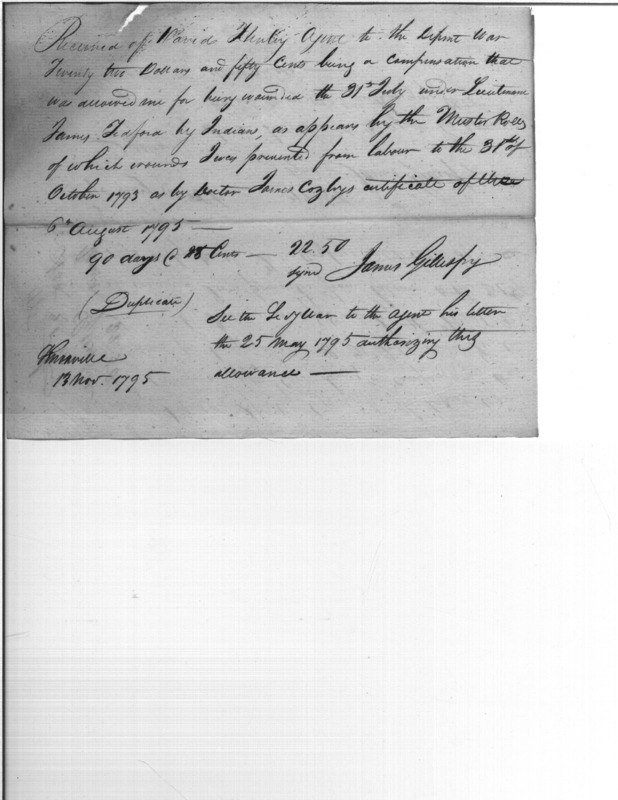 Received of David Henley Agent to the Depmt War
Twenty two Dollars and fifty Cents being a compensation that
was allowed me for being wounded the 31st July under Lieutenant
James Tedford by Indians, as appears by the Muster Rolls
of which wounds I was prevented from labour to the 31st of
October 1793 as by Doctor James Cozbys certificate of the
6th August 1795 —
90 days @ 25 Cents — 22.50
signd James Gillespy
(Duplicate)
See the Secy War to the agent his letter
the 25 May 1795 authorizing this
allowance —
Knoxville
13 Nov. 1795